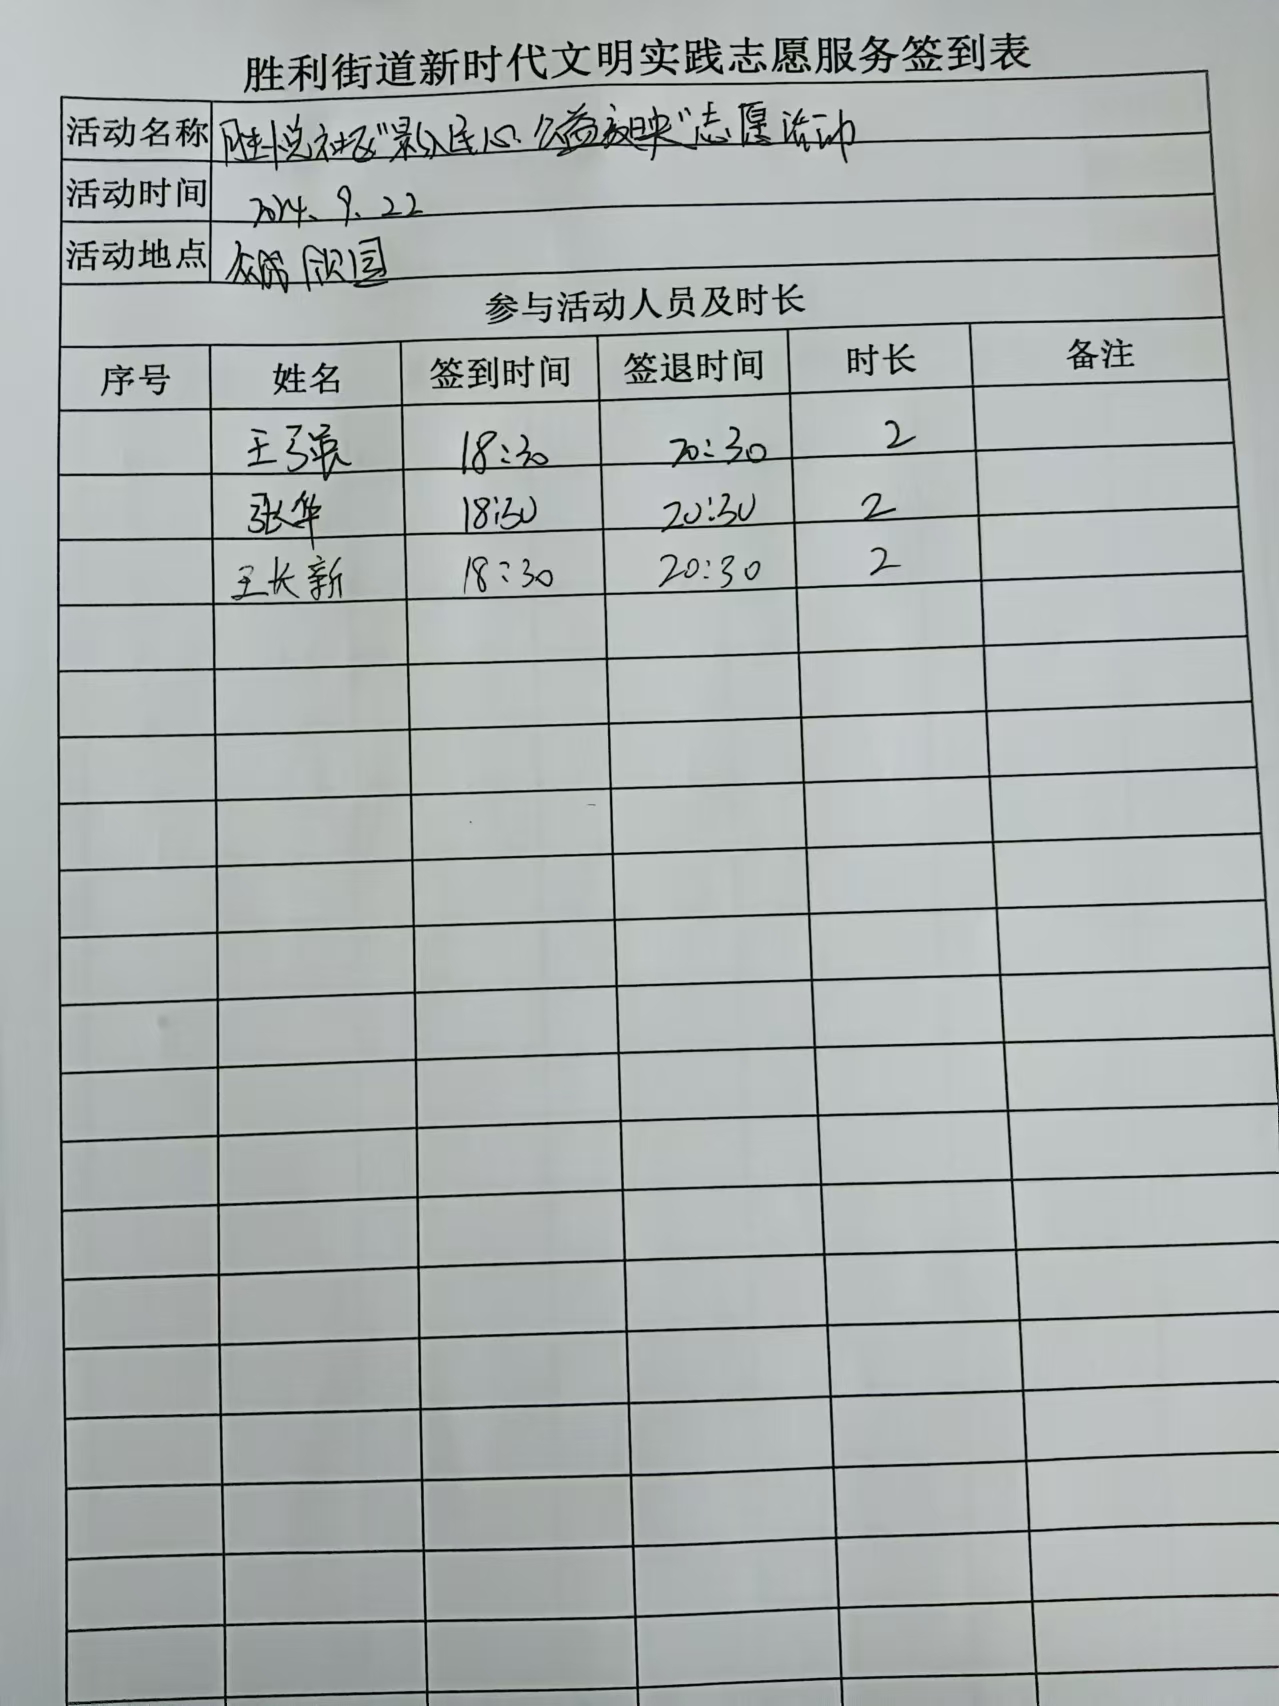 胜利街道新时代文明实践志愿服务签到表
活动名称 胜悦社区"影公民心 公益放映"志愿活动
活动时间 2024、9、22
活动地点 欣园
参与活动人员及时长
序号 姓名 签到时间 签退时间 时长 备注
王强 18:30 20:30 2
张华 18:30 20:30 2
王长新 18:30 20:30 2